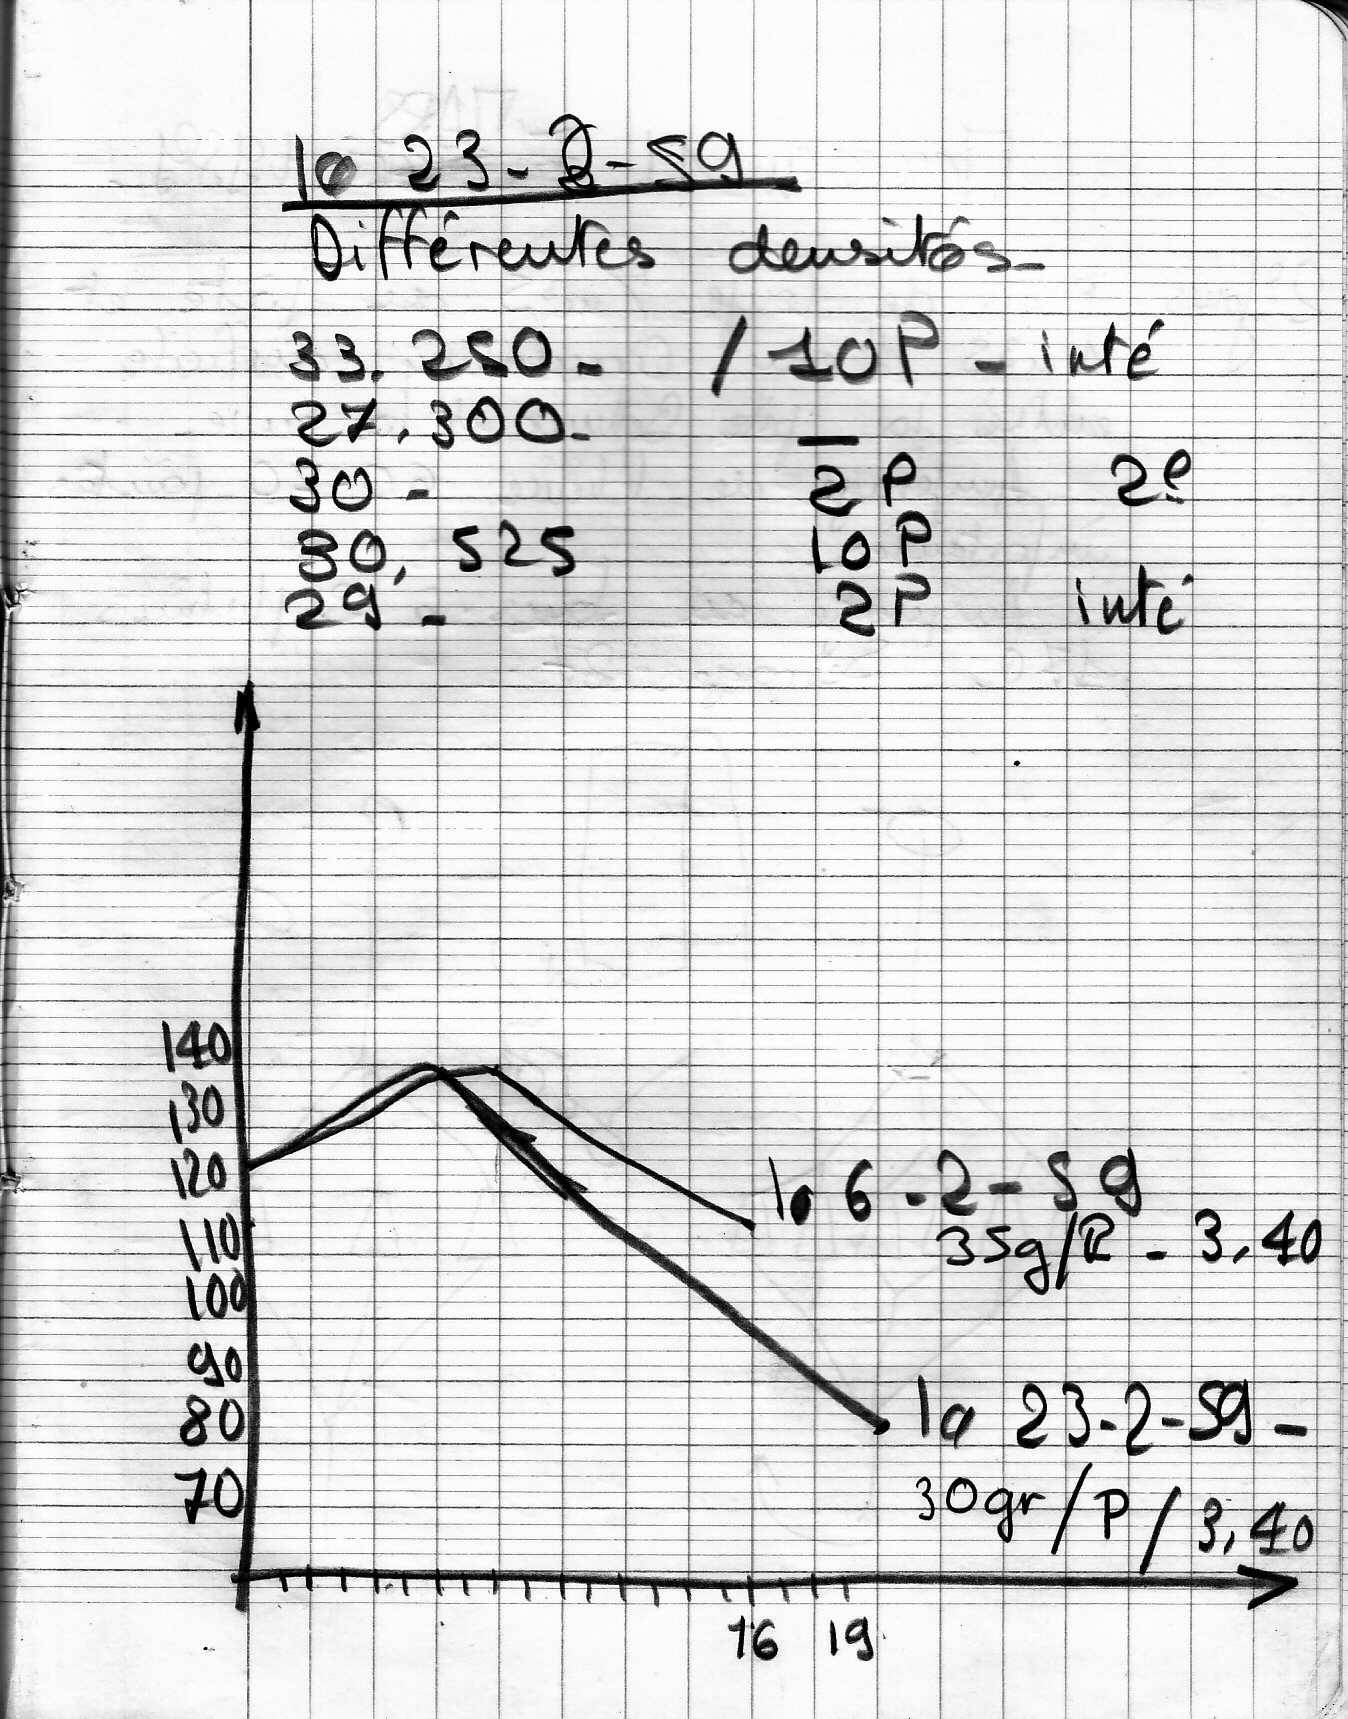 le 23-2-59
Différentes densités-
33.250- / 10P - inté
27.300- —
30 - 2P 2e
30,525 10P
29 - 2P inté
140
130
120
110
100
90
80
70
le 6-2-59
35g/P - 3,40
le 23-2-59-
30gr/P/3,40
16 19